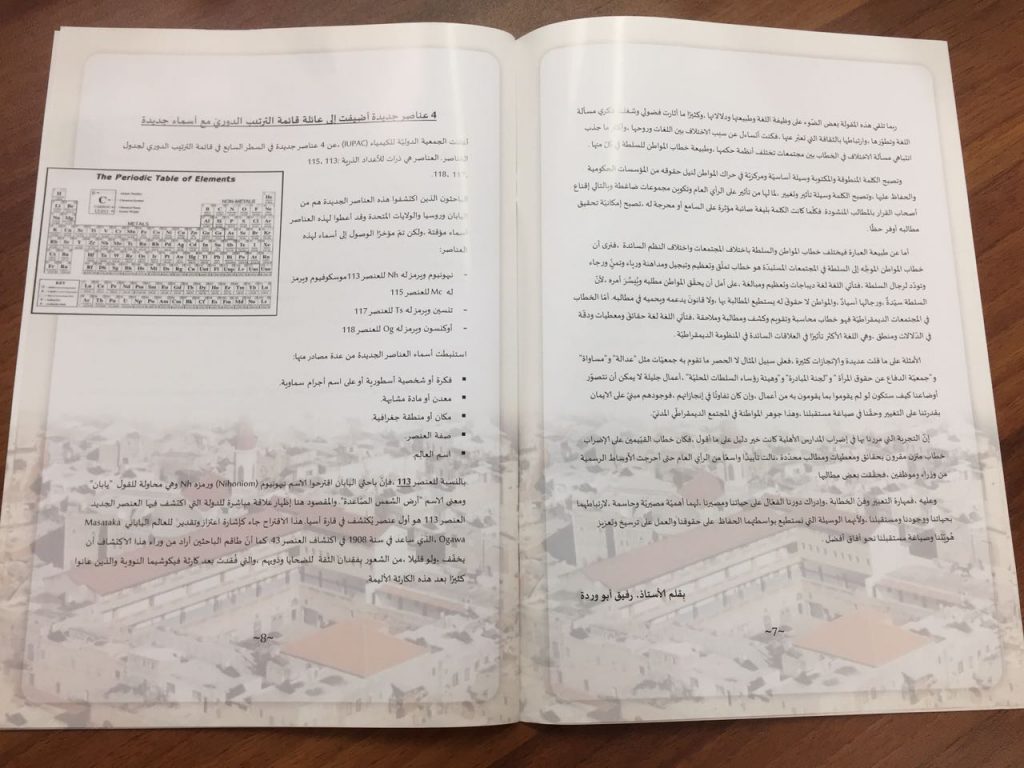 ربما تلقي هذه المقولة بعض الضّوء على وظيفة اللغة وطبيعتها ودلالاتها ،وكثيرًا ما أثارت فضولي وشغلت فكري مسألة
اللغة وتطوّرها ،وارتباطها بالثقافة التي تعبّر عنها ،فكنت أتساءل عن سبب الاختلاف بين اللغات وروحها ،وأكثر ما جذب
انتباهي مسألة الاختلاف في الخطاب بين مجتمعات تختلف أنظمة حكمها ،وطبيعة خطاب المواطن للسلطة في كلّ منها.
وتصبح الكلمة المنطوقة والمكتوبة وسيلة أساسيّة ومركزيّة في حراك المواطن لنيل حقوقه من المؤسسات الحكومية
والحفاظ عليها ،وتصبح الكلمة وسيلة تأثير وتغيير ،لما لها من تأثير على الرأي العام وتكوين مجموعات ضاغطة وبالتالي إقناع
أصحاب القرار بالمطالب المنشودة. فكلّما كانت الكلمة بليغة صائبة مؤثرة على السامع أو محرجة له ،تصبح إمكانيّة تحقيق
مطالبه أوفر حظًا
أما عن طبيعة العبارة فيختلف خطاب المواطن والسلطة باختلاف المجتمعات واختلاف النظم السائدة .فنرى أن
خطاب المواطن الموجّه إلى السلطة في المجتمعات المستبدّة هو خطاب تملّق وتعظيم وتبجيل ومداهنة ورياء وتمنٍّ ورجاء
وتودّد لرجال السلطة، فتأتي اللغة لغة ديباجات وتعظيم ومبالغة ،على أمل أن يحقّق المواطن مطلبه ويُيَسَّر أمره ،لأنّ
السلطة سيّدةٌ ،ورجالها أسيادٌ، والمواطن لا حقوق له يستطيع المطالبة بها ،ولا قانون يدعمه ويحميه في مطالبه. أمّا الخطاب
في المجتمعات الديمقراطيّة فهو خطاب محاسبة وتقويم وكشف ومطالبة وملاحقة ،فتأتي اللغة لغة حقائق ومعطيات ودقّة
في الدّلالات ومنطق ،وهي اللغة الأكثر تأثيرًا في العلاقات السائدة في المنظومة الديمقراطيّة.
الأمثلة على ما قلت عديدة والإنجازات كثيرة ،فعلى سبيل المثال لا الحصر ما تقوم به جمعيّات مثل "عدالة" و"مساواة"
و"جمعيّة الدفاع عن حقوق المرأة" و"لجنة المبادرة" و"وهيئة رؤساء السلطات المحليّة" ،أعمال جليلة لا يمكن أن نتصوّر
أوضاعنا كيف ستكون لو لم يقوموا بما يقومون به من أعمال ،وإن كان تفاوتًا في إنجازاتهم .فوجودهم مبنيّ على الايمان
بقدرتنا على التغيير وحقّنا في صياغة مستقبلنا ،وهذا جوهر المواطنة في المجتمع الديمقراطي المدنيّ.
إنّ التجربة التي مررنا بها في إضراب المدارس الأهلية كانت خير دليل على ما أقول ،فكان خطاب القيّمين على الإضراب
خطاب متزن مقرون بحقائق ومعطيات ومطالب محدّدة ،نالت تأييدًا واسعًا من الرأي العام حتى أحرجت الأوساط الرسمية
من وزراء وموظفين ،فحقّقت بعض مطالبها
وعليه ،فمهارة التعبير وفنّ الخطابة ،وإدراك دورنا الفعّال على حياتنا ومصيرنا ،لهما أهميّة مصيريّة وحاسمة ،لارتباطهما
بحياتنا ووجودنا ومستقبلنا ،ولأنهما الوسيلة التي نستطيع بواسطتهما الحفاظ على حقوقنا والعمل على ترسيخ وتعزيز
هُويّتنا وصياغة مستقبلنا نحو آفاق أفضل.
بقلم الأستاذ. رفيق أبو وردة
~7~
4 عناصر جديدة أضيفت إلى عائلة قائمة الترتيب الدوري مع أسماء جديدة
الجمعية الدوليّة للكيمياء (IUPAC) ،عن 4 عناصر جديدة في السطر السابع في قائمة الترتيب الدوري لجدول
العناصر. العناصر هي ذرات للأعداد الذرية :113 ،115
،117 ،118.
الباحثون الذين اكتشفوا هذه العناصر الجديدة هم من
اليابان وروسيا والولايات المتحدة وقد أعطوا لهذه العناصر
أسماء مؤقتة ،ولكن تمّ مؤخرًا الوصول إلى أسماء لهذه
العناصر:
The Periodic Table of Elements
NON-METALS
METALS
KEY
- نيهونيوم ويرمز له Nh للعنصر 113 موسكوفيوم ويرمز
له Mc للعنصر 115
- تنسين ويرمز له Ts للعنصر 117
- أوكنسون ويرمز له Og للعنصر 118
استنبطت أسماء العناصر الجديدة من عدة مصادر منها:
▪ فكرة أو شخصية أسطورية أو على اسم أجرام سماوية.
▪ معدن أو مادة مشابهة.
▪ مكان أو منطقة جغرافية.
▪ صفة العنصر.
▪ اسم العالم
بالنسبة للعنصر 113 ،فإنّ باحثي اليابان اقترحوا الاسم نيهونيوم (Nihoniom) ورمزه Nh وهي محاولة للقول "يابان"
ومعنى الاسم "أرض الشمس الصّاعدة" والمقصود هنا إظهار علاقة مباشرة للدولة التي اكتشف فيها العنصر الجديد.
العنصر 113 هو أول عنصر يُكتشف في قارة آسيا. هذا الاقتراح جاء كإشارة اعتزاز وتقدير للعالم الياباني Masataka
Ogawa ،الذي ساعد في سنة 1908 في اكتشاف العنصر 43. كما أنّ طاقم الباحثين أراد من وراء هذا الاكتشاف أن
يخفّف ،ولو قليلا ،من الشعور بفقدان الثّقة للضحايا وذويهم ،والتي فُقدت بعد كارثة فيكوشيما النووية والذين عانوا
كثيرًا بعد هذه الكارثة الأليمة.
~8~